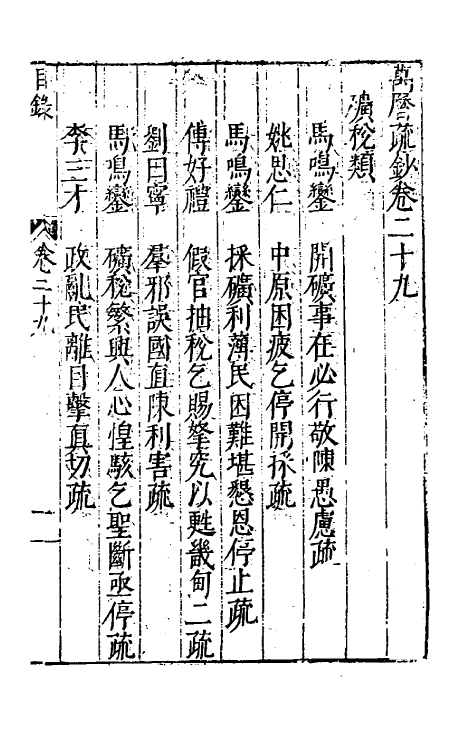 萬曆疏鈔卷二十九
礦稅類
馬鳴鑾　開礦事在必行敬陳愚慮疏
姚思仁　中原困疲乞停開採疏
馬鳴鑾　採礦利薄民困難堪懇恩停止疏
傅好禮　假官抽稅乞賜拏究以甦畿甸二疏
劉曰寧　羣邪誤國直陳利害疏
馬鳴鑾　礦稅繁興人心惶駭乞聖斷亟停疏
李三才　政亂民離目擊真切疏
目錄　卷二十九　一